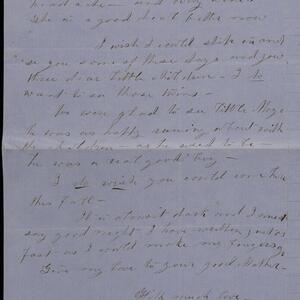 headache – and very
She is a good deal better now
I wish I could step in and
see you some of these days and your
three dear little children – I do
want to see those twins –
We were glad to see little
he was as happy running about with
the children – as he used to be –
he was a real good boy –
I do wish you could come here
this fall –
It is almost dark and I must
say good night I have written just as
fast as I could make my fingers go
Give my love to your good Mother –
With much love –